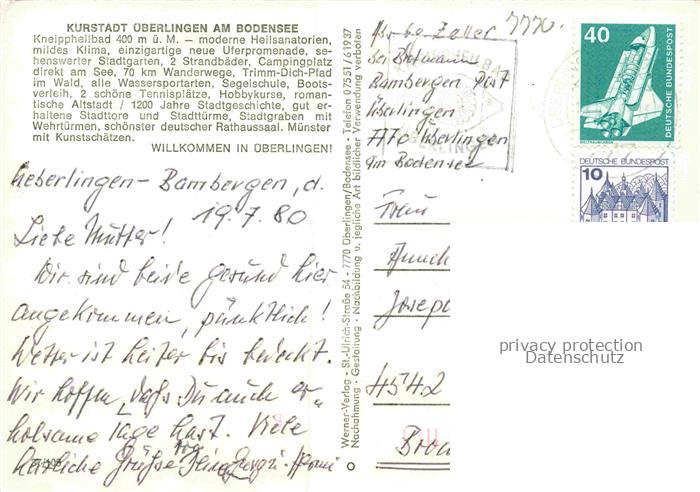 KURSTADT ÜBERLINGEN AM BODENSEE
Kneippheilbad 400 m ü. M. – moderne Heilsanatorien,
mildes Klima, einzigartige neue Uferpromenade, se-
henswerter Stadtgarten, 2 Strandbäder, Campingplatz
direkt am See, 70 km Wanderwege, Trimm-Dich-Pfad
im Wald, alle Wassersportarten, Segelschule, Boots-
verleih, 2 schöne Tennisplätze, Hobbykurse, roman-
tische Altstadt / 1200 Jahre Stadtgeschichte, gut er-
haltene Stadttore und Stadttürme, Stadtgraben mit
Wehrtürmen, schönster deutscher Rathaussaal. Münster
mit Kunstschätzen.
WILLKOMMEN IN ÜBERLINGEN!
Ueberlingen - Bambergen, d.
19.7.80
Liebe Mutter!
Wir sind beide gesund hier
angekommen, pünktlich!
Wetter ist heiter bis bedeckt.
Wir hoffen, daß Du auch er-
holsame Tage hast. Viele
herzliche Grüße
Werner-Verlag · St.-Ulrich-Straße 54 · 7770 Überlingen/Bodensee - Telefon 07551/61937
Nachahmung - Gestaltung - Nachbildung u. jegliche Art bildlicher Verwendung verboten
7770.
Zeller
bei
Bambergen Post
Überlingen
7770 Überlingen
am Bodensee
Frau
Josep
4542
40
DEUTSCHE BUNDESPOST
WELTRAUMLABOR
DEUTSCHE BUNDESPOST
10
privacy protection
Datenschutz